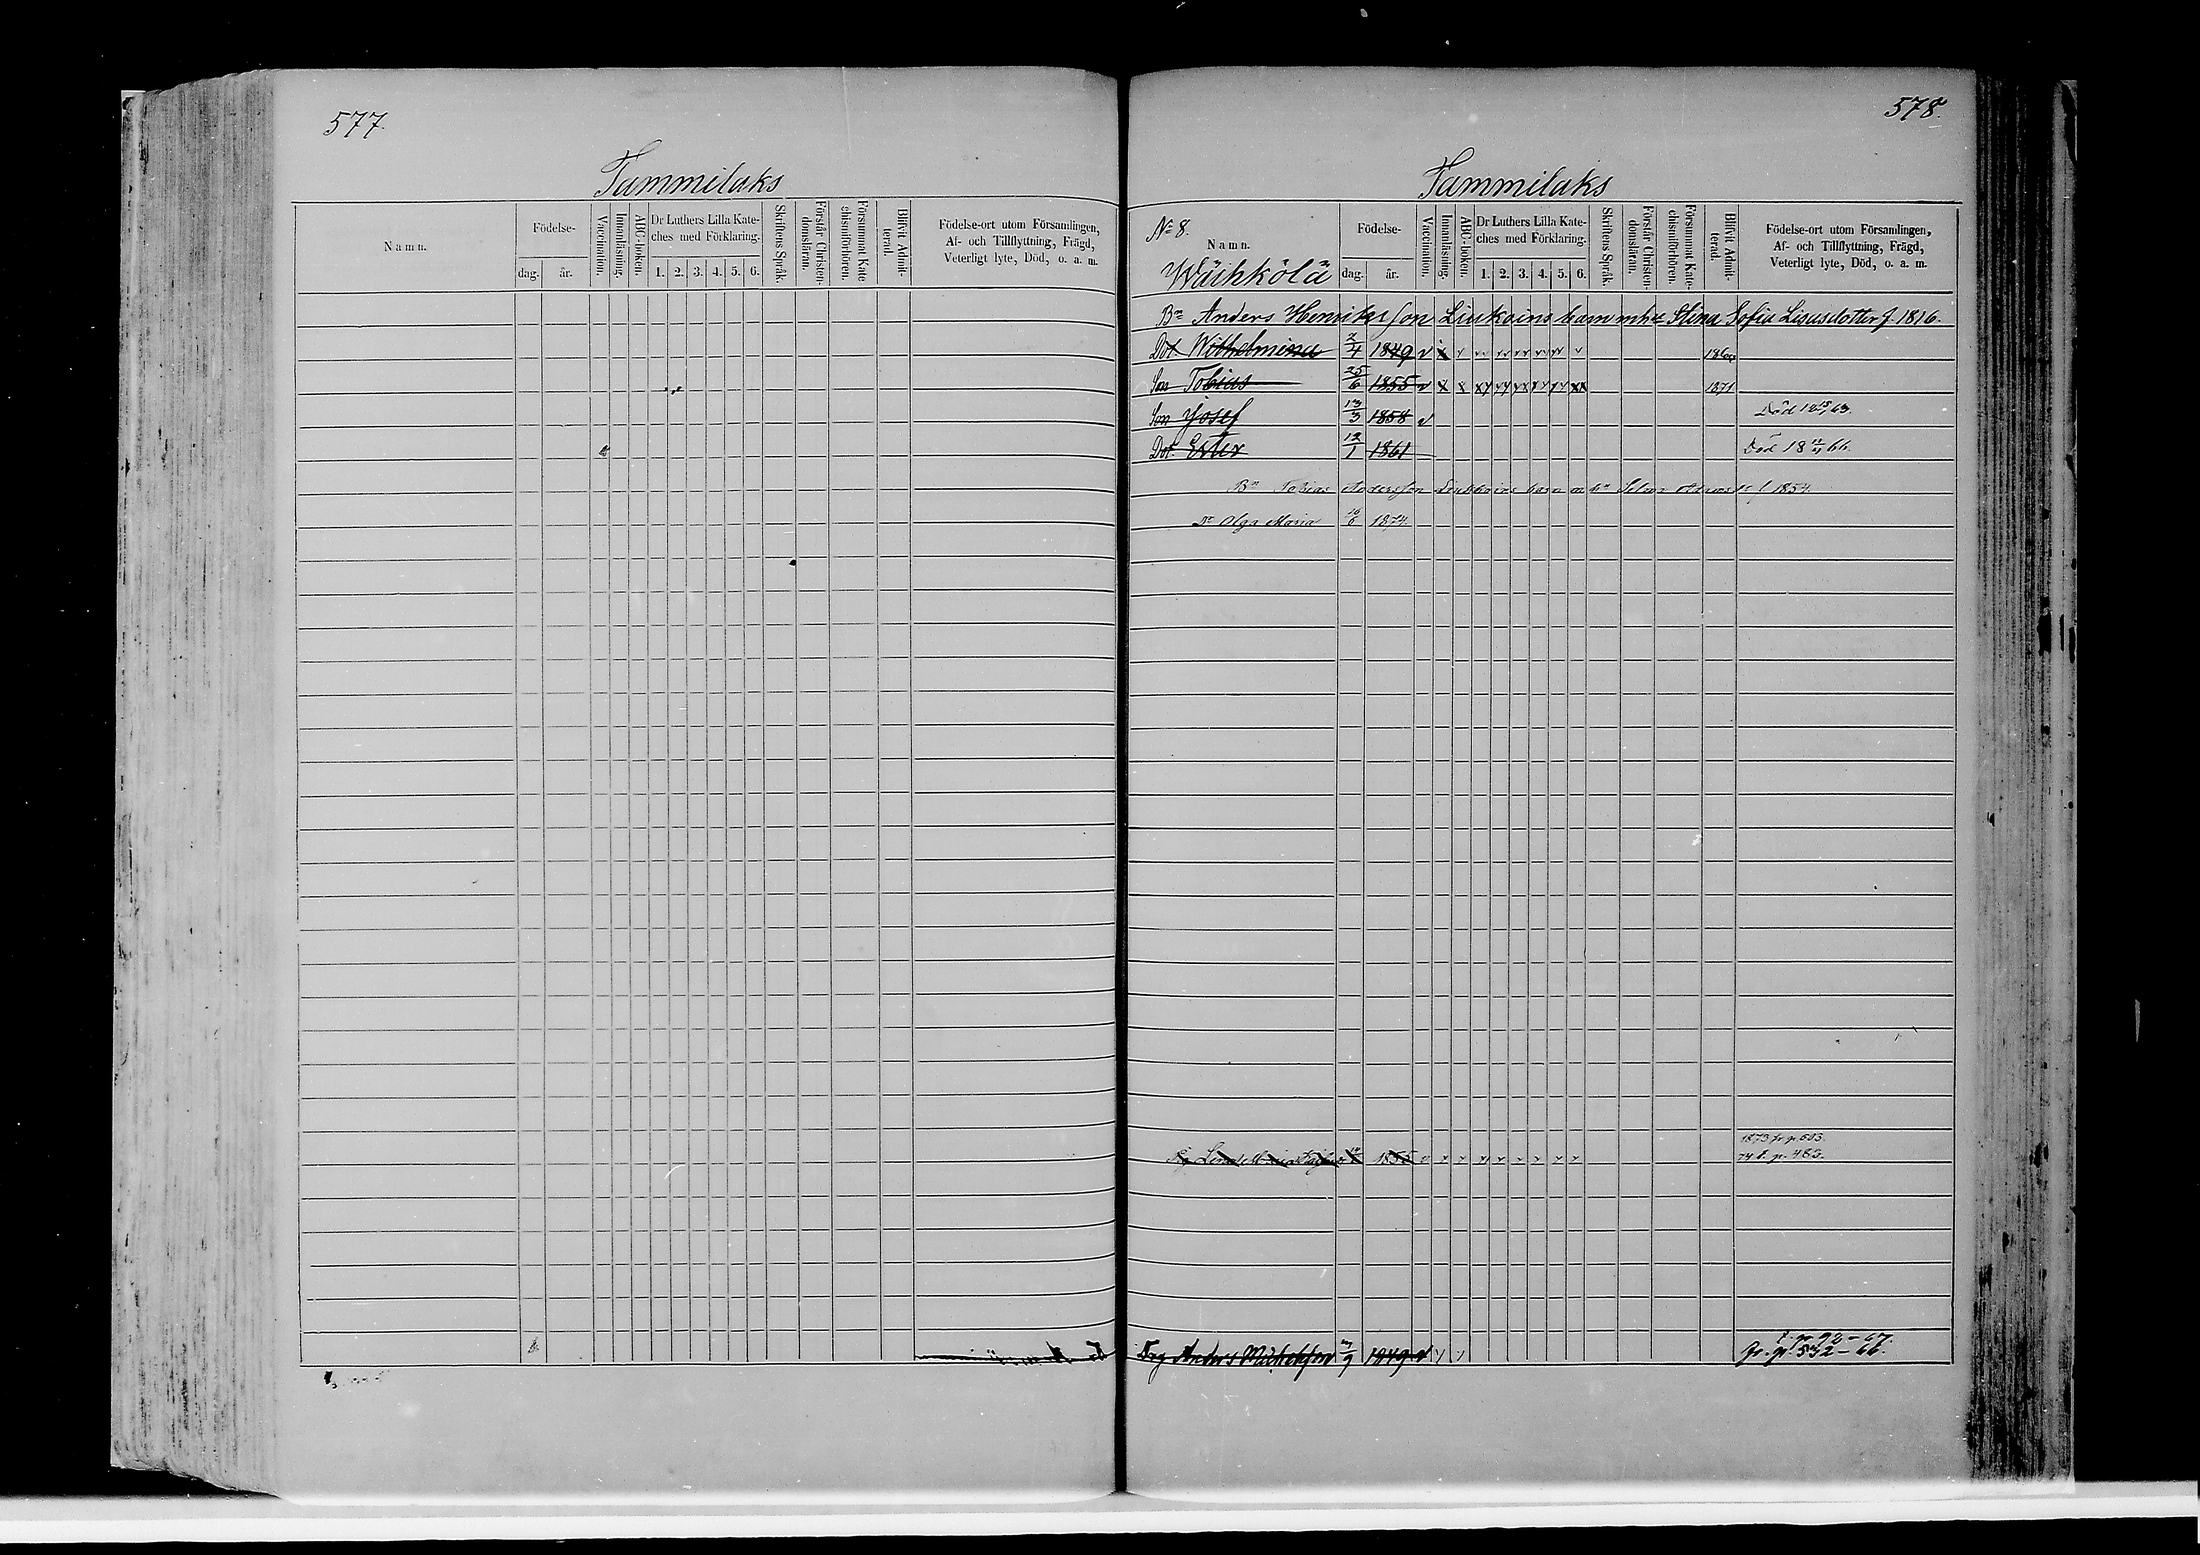 577.
Tammilaks
Namn.
Födelse-
dag.
år.
Vaccination.
Innanläsning.
ABC-boken.
Dr Luthers Lilla Kate-
ches med Förklaring.
1. 2. 3. 4. 5. 6.
Skriftens Språk.
Förstår Christen-
domsläran.
Försummat Kate
chismiförhören.
Blifvit Admit-
terad.
Födelse-ort utom Församlingen,
Af- och Tillflyttning, Frägd,
Veterligt lyte, Död, o. a. m.
578.
Tammilaks
No 8.
Namn.
Wäihkölä
Födelse-
dag.
år.
Vaccination.
Innanläsning.
ABC-boken.
Dr Luthers Lilla Kate-
ches med Förklaring.
1. 2. 3. 4. 5. 6.
Skriftens Språk.
Förstår Christen-
domsläran.
Försummat Kate-
chismiförhören.
Blifvit Admit-
terad.
Födelse-ort utom Församlingen,
Af- och Tillflyttning, Frägd,
Veterligt lyte, Död, o. a. m.
Bn Anders Henriksson Liukoins barn mhu Stina Sofia Lisasdotter f. 1816.
Dot. Wilhelmina 2/4 1849
Son Tobias 25/6 1855 1871
Son Josef 13/3 1858 Död
Dot. Ester 12/1 1861 Död
Bn Tobias Andersson Liukkoins barn m hu f. 1854.
Dr Olga Maria 1874.
1873 fr p. 503.
1855 74 t. p. 483.
t. p. 92-67.
Drg Anders Michelsson 9 1849 fr. p. 532-66.